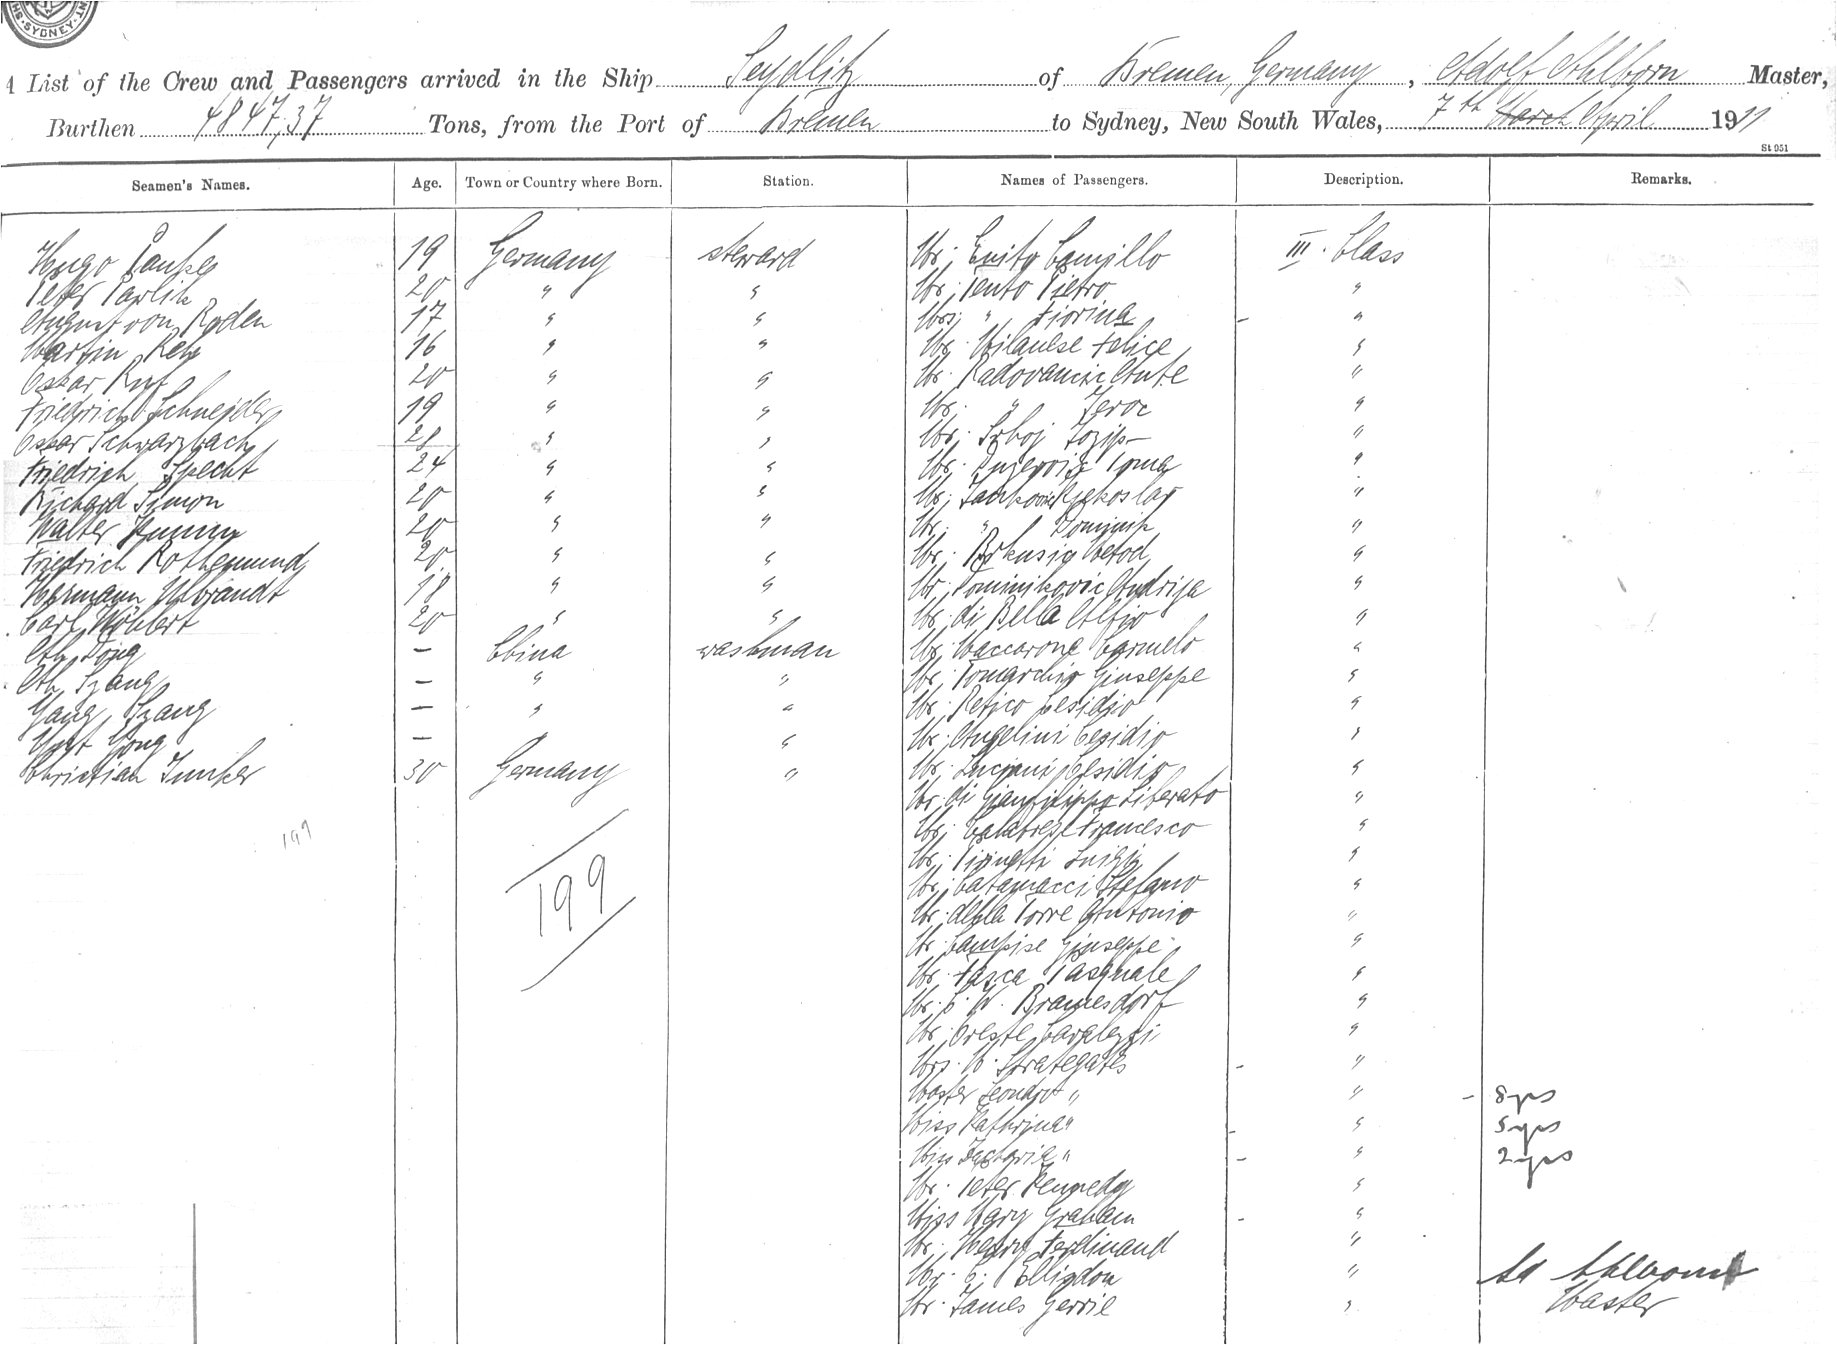 SYDNEY
A List of the Crew and Passengers arrived in the Ship Seydlitz of Bremen, Germany, Adolf Ahlborn Master,
Burthen 4847,37 Tons, from the Port of Bremen to Sydney, New South Wales, 7th March April 1911
St 951
Seamen's Names. Age. Town or Country where Born. Station. Names of Passengers. Description. Remarks.
Hugo 19 Germany steward Mr. Camillo III. Class
Peter Pawlik 20 " " Mr. Tento Pietro "
August von Roden 17 " " Mrs. " Fiorina "
Martin 16 " " Mr. Milanese Felice "
Oscar Ruf 20 " " Mr. Radovancic Ante "
Friedrich Schneider 19 " " Mr. " Jeroc "
Oscar Schwarzbach 21 " " Mr. Srhoj Jozip "
Friedrich Specht 24 " " Mr. Toma "
Richard Simon 20 " " Mr. Jankovic "
Walter 20 " " Mr. " Dominik "
Friedrich Rothemund 20 " " Mr. Metod "
Hermann 18 " " Mr. Dominikovic Andrija "
Carl Wöhlert 20 " " Mr. di Bella Alfio "
Ah Tong — China washman Mr. Maccarone Carmelo "
Ah Szang — " " Mr. Tomarchio Giuseppe "
Yang Szang — " " Mr. Cesidio "
Gong — " " Mr. Angelini Cesidio "
Christian Junker 30 Germany " Mr. Luciani Cesidio "
Mr. di Gianfilippo Liberato "
Mr. Calabrese Francesco "
199 Mr. Luigi "
Mr. Catamacci Stefano "
199 Mr. della Torre Antonio "
Mr. Campise Giuseppe "
Mr. Tasca Pasquale "
Mr. C. W. Bramesdorf "
Mr. Oreste "
Mrs. M. Strategates "
Master " " 8 yrs
Miss Kathrina " " 5 yrs
Miss " " 2 yrs
Mr. Peter Kennedy "
Miss Mary Graham "
Mr. Henry Ferdinand "
Mr. C. Elligdon " Ad Ahlborn
Mr. James " Master